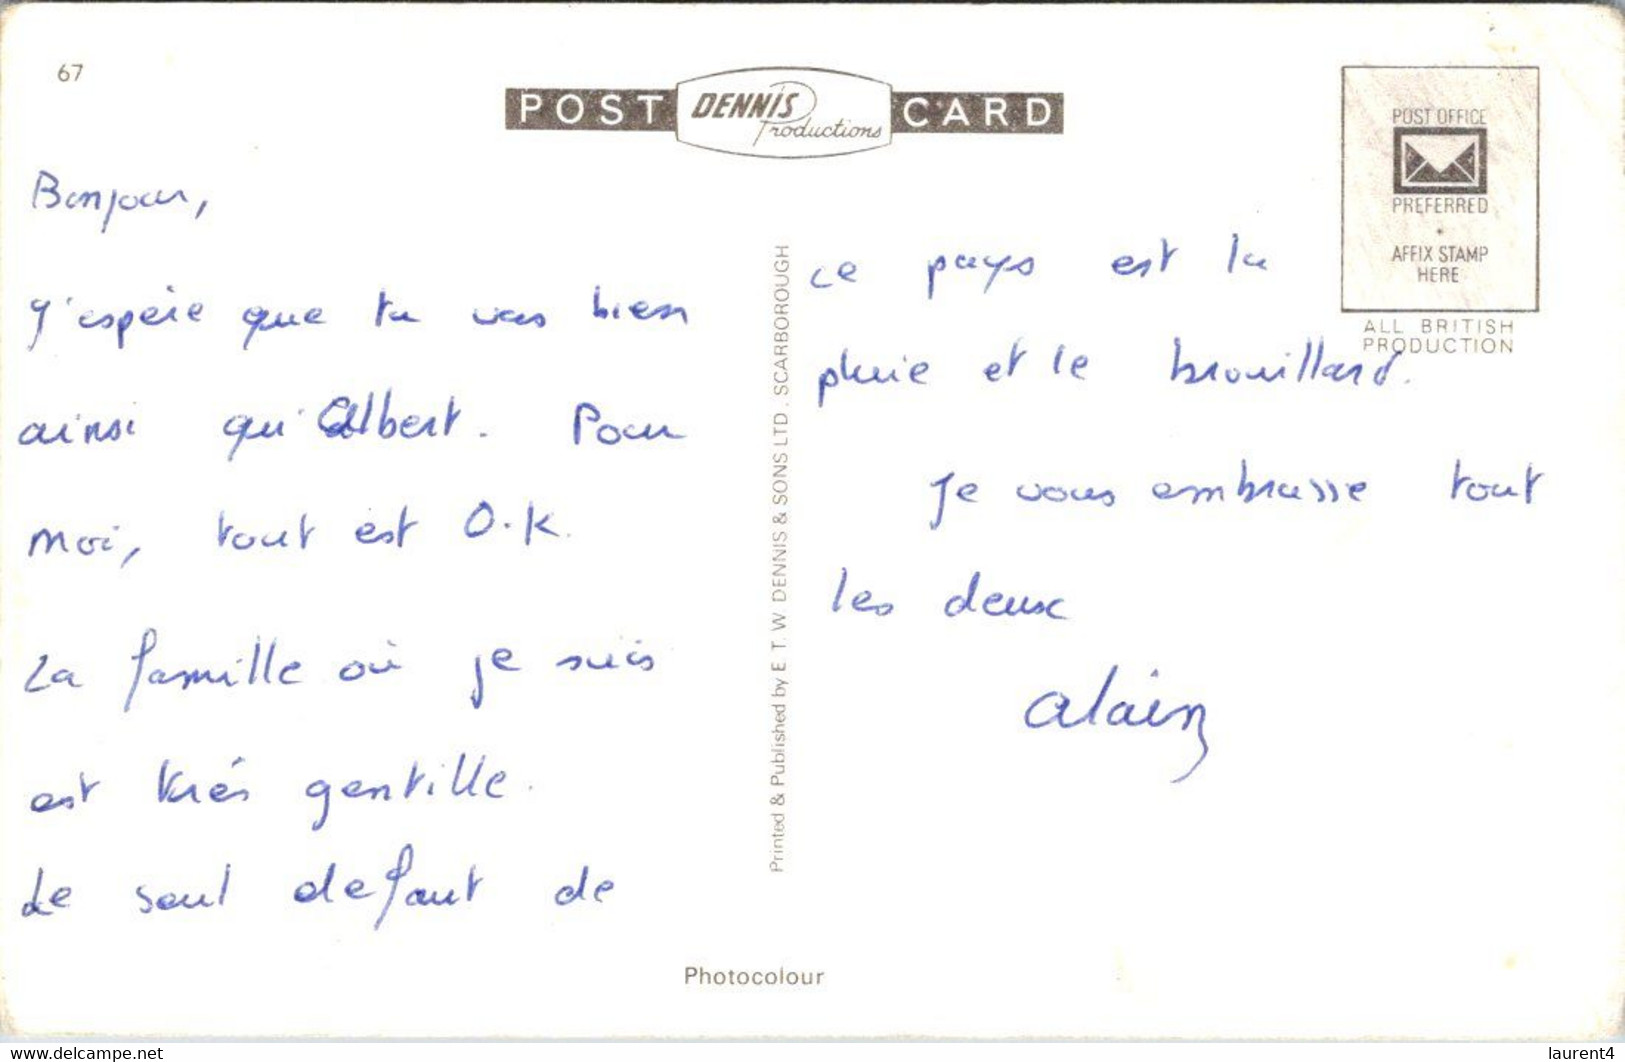 67
POST DENNIS Productions CARD
POST OFFICE
PREFERRED
AFFIX STAMP
HERE
ALL BRITISH
PRODUCTION
Bonjour,
J'espère que tu vas bien
ainsi qu'Albert. Pour
moi, tout est O.K.
La famille où je suis
est très gentille.
Le seul defaut de
Printed & Published by E. T. W. DENNIS & SONS LTD., SCARBOROUGH
ce pays est la
pluie et le brouillard.
Je vous embrasse tout
les deux
Alain
Photocolour
https://www.delcampe.net
laurent4